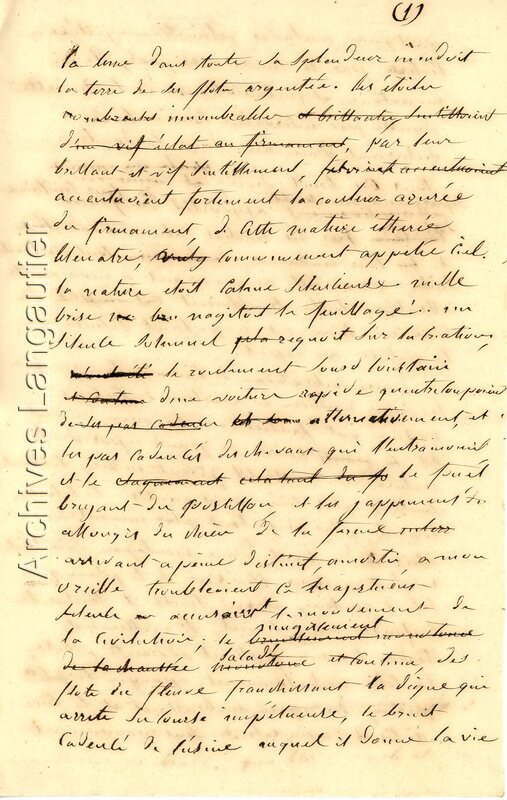 (1)
la lune dans toute sa splendeur inondoit
la terre de ses flots argentés. les étoiles
nombreuses innombrables et brillantes scintilloient
d'un vif éclat au firmament, par leur
brillant et vif scintillement, accentuoient
accentuoient fortement la couleur azurée
du firmament de cette matière éthérée
bleuatre, communement appelée ciel.
la nature était calme silencieuse nulle
brise ne agitoit le feuillage.. un
silence solennel regnoit sur la création,
le roulement sourd lointain
et continu d'une voiture rapide
de ses pas cadencés et son alternativement, et
les pas cadencés des chevaux qui l'entrainoient
et le claquement éclatant du fo le fouet
bruyant du postillon, et les jappements
allongés du chien de la ferme
arrivant a peine distinct, amortis a mon
oreille troubloient ce majestueux
silence accusoient le mouvement de
la civilisation; le mugissement
bouillonnant monotone
de la chaussée saccadé monotone et continu, des
flots du fleuve franchissant la digue qui
arrete sa course impétueuse, le bruit
cadencé de l'usine auquel il donne la vie
Archives Langautier